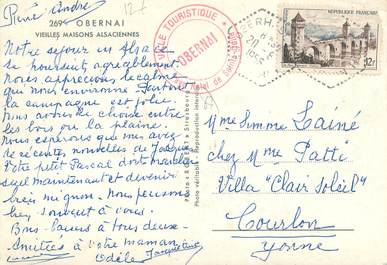 René André
269 OBERNAI
VIEILLES MAISONS ALSACIENNES
12-f
VILLE TOURISTIQUE
OBERNAI
RÉPUBLIQUE FRANÇAISE
12f
Notre séjour en Alsace
se poursuit agréablement
nous apprécions le calme
qui nous environne. Partout
la campagne est jolie
nous avons le choix entre
les bois ou la plaine.
Nous espérons que vous avez
de récentes nouvelles de Jacques
votre petit Pascal doit marcher
seul maintenant et devenir
très mignon. Nous pensons
bien souvent à vous.
Bons baisers à tous deux.
Amitiés à votre maman
Odile Jacqueline
Mme Simone Lainé
chez Mme Patti
Villa "Clair Soleil"
Courlon
Yonne